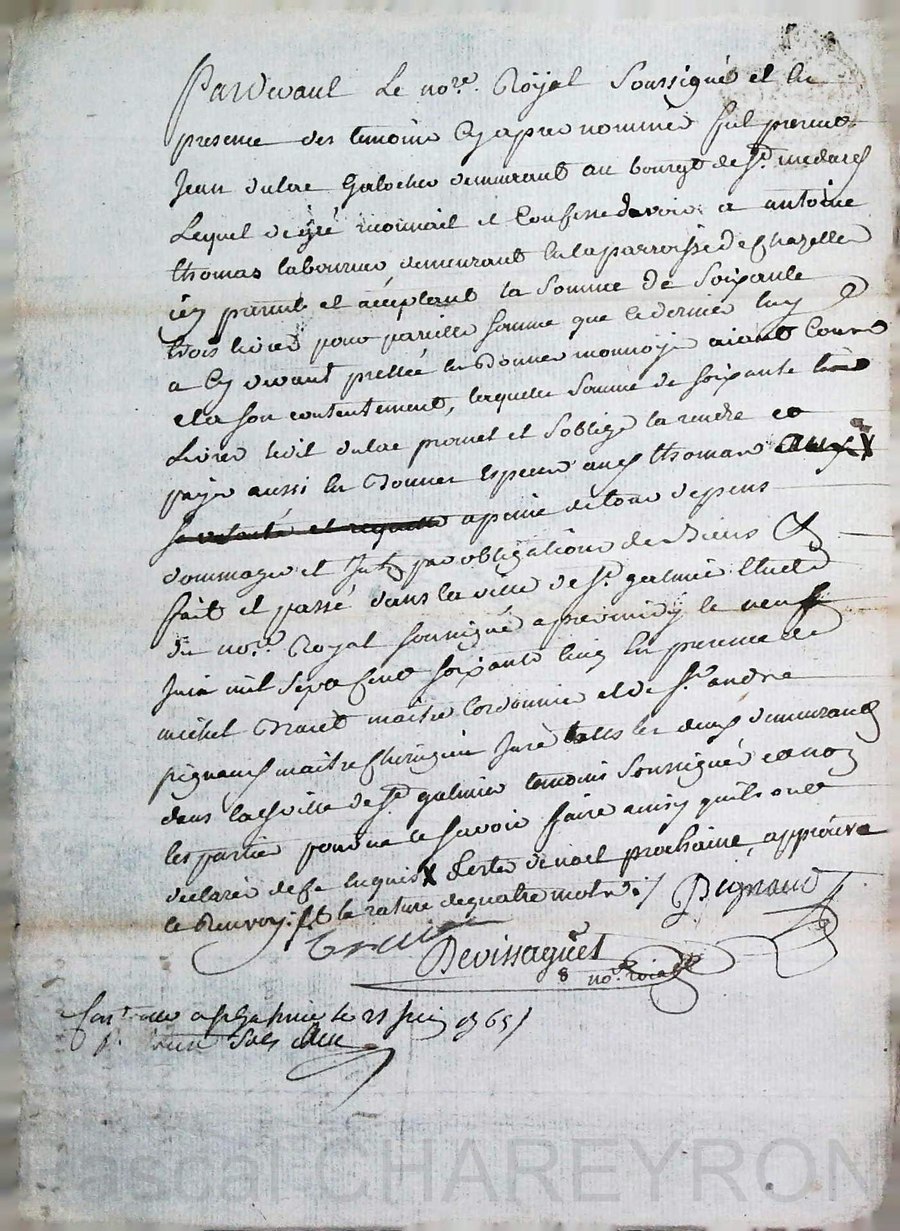 Pardevant Le no.re Royal Soussigné et En
presence des temoins Cy apres nommés fut present
Jean dulac Galocher demeurant au bourgt de St. medard
Lequel de gré reconnait et Confesse devoir a antoine
thomas laboureur demeurant en la parroisse de Chazelles
icy present et acceptant la Somme de Soixante
trois livres pour pareille Somme que ce dernier luy
a Cy devant prettée en Bonne monnoye aiant Cours
et a son contentement, laquelle Somme de soixante trois
Livres ledit dulac promet et S'oblige la rendre et
payer aussi En Bonnes Especes aud. thomas X
Sa volonté et requette a peine de tous depens
dommages et obligations de Biens
fait et passé dans la ville de St. galmier Etude
du no.re Royal soussigné apres midy le neuf
Juin mil Sept Cent soixante Cinq En presence de
michel maitre Cordonnier et de Sr. andré
pignaud maitre Chirurgien Juré tous les deux demeurants
dans lad. ville de St. galmier temoins Soussignés et non
les parties pour ne le Savoir faire ainsy qu'ils ont
declaré de ce enquis X festes de noel prochaine, approuve
le Renvoy: Et la rature de quatre mots ./. Pignaud
Devissaguet
no.re Royal
a St Galmier le 21 Juin 1765